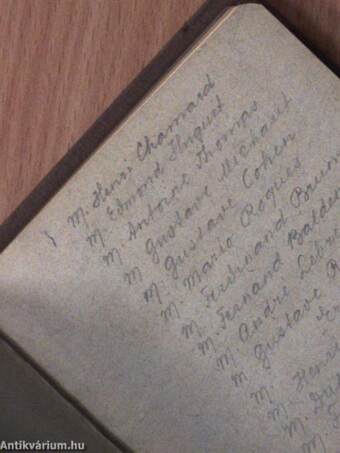 M. Henri Chamard
M. Edmond Huguet
M. Antoine Thomas
M. Gustave Michaut
M. Gustave Cohen
M. Mario Roques
M. Ferdinand Brun
M. Fernand Balden
M. André Lebre
M. Gustave R
M. Henri
M.
M.
Antikvárium.hu